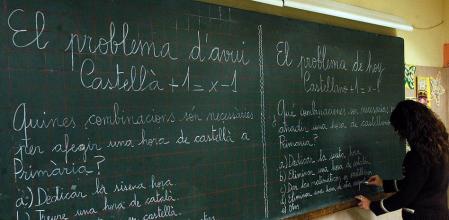 El problema d'avui
Castellà + 1 = x - 1
Quines combinacions són necessàries
per afegir una hora de castellà a
Primària?
a) Dedicar la sisena hora
b) Treure una hora de català
en castellà
El problema de hoy
Castellano + 1 = x - 1
¿Qué combinaciones son necesarias
añadir una hora de castellano
Primaria?
a) Dedicar la sexta hora
b) Eliminar una hora de catalán
c) Dar las matemáticas
d) Eliminar una hora de